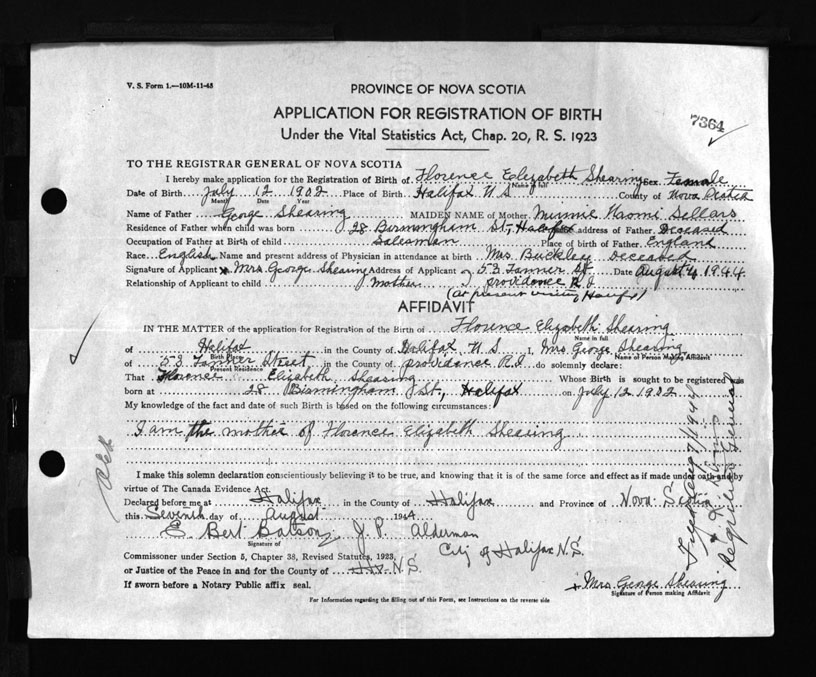 V. S. Form 1.—10M-11-43
PROVINCE OF NOVA SCOTIA
APPLICATION FOR REGISTRATION OF BIRTH
7364
Under the Vital Statistics Act, Chap. 20, R. S. 1923
TO THE REGISTRAR GENERAL OF NOVA SCOTIA
I hereby make application for the Registration of Birth of Florence Elizabeth Shearing Sex Female
Name in full
Date of Birth July 12 1902 Place of Birth Halifax N S County of Nova Scotia
Month Date Year
Name of Father George Shearing MAIDEN NAME of Mother Minnie Naomi Sellars
Residence of Father when child was born 28 Birmingham St, Halifax address of Father Deceased
Occupation of Father at Birth of child Salesman Place of birth of Father England
Race English Name and present address of Physician in attendance at birth Mrs Buckley Deceased
Signature of Applicant x Mrs George Shearing Address of Applicant 53 Tanner St Date August 4 1944
Relationship of Applicant to child mother Providence R I
(at present visiting Halifax)
AFFIDAVIT
IN THE MATTER of the application for Registration of the Birth of Florence Elizabeth Shearing
Name in full
of Halifax in the County of Halifax N S I, Mrs George Shearing
Birth Place Name of Person Making Affidavit
of 53 Tanner Street in the County of Providence R.I. do solemnly declare:
Present Residence
That Florence Elizabeth Shearing Whose Birth is sought to be registered was
born at 28 Birmingham St., Halifax on July 12 1902
My knowledge of the fact and date of such Birth is based on the following circumstances:
I am the mother of Florence Elizabeth Shearing
I make this solemn declaration conscientiously believing it to be true, and knowing that it is of the same force and effect as if made under oath and by
virtue of The Canada Evidence Act.
Declared before me at Halifax in the County of Halifax and Province of Nova Scotia
this Seventh day of August 1944
E. Bert Batson J. P. Alderman
Signature of
City of Halifax N.S.
Commissoner under Section 5, Chapter 38, Revised Statutes, 1923
or Justice of the Peace in and for the County of Hx. N.S.
If sworn before a Notary Public affix seal.
x Mrs. George Shearing
Signature of Person making Affidavit
For Information regarding the filling out of this Form, see Instructions on the reverse side
Registrar General